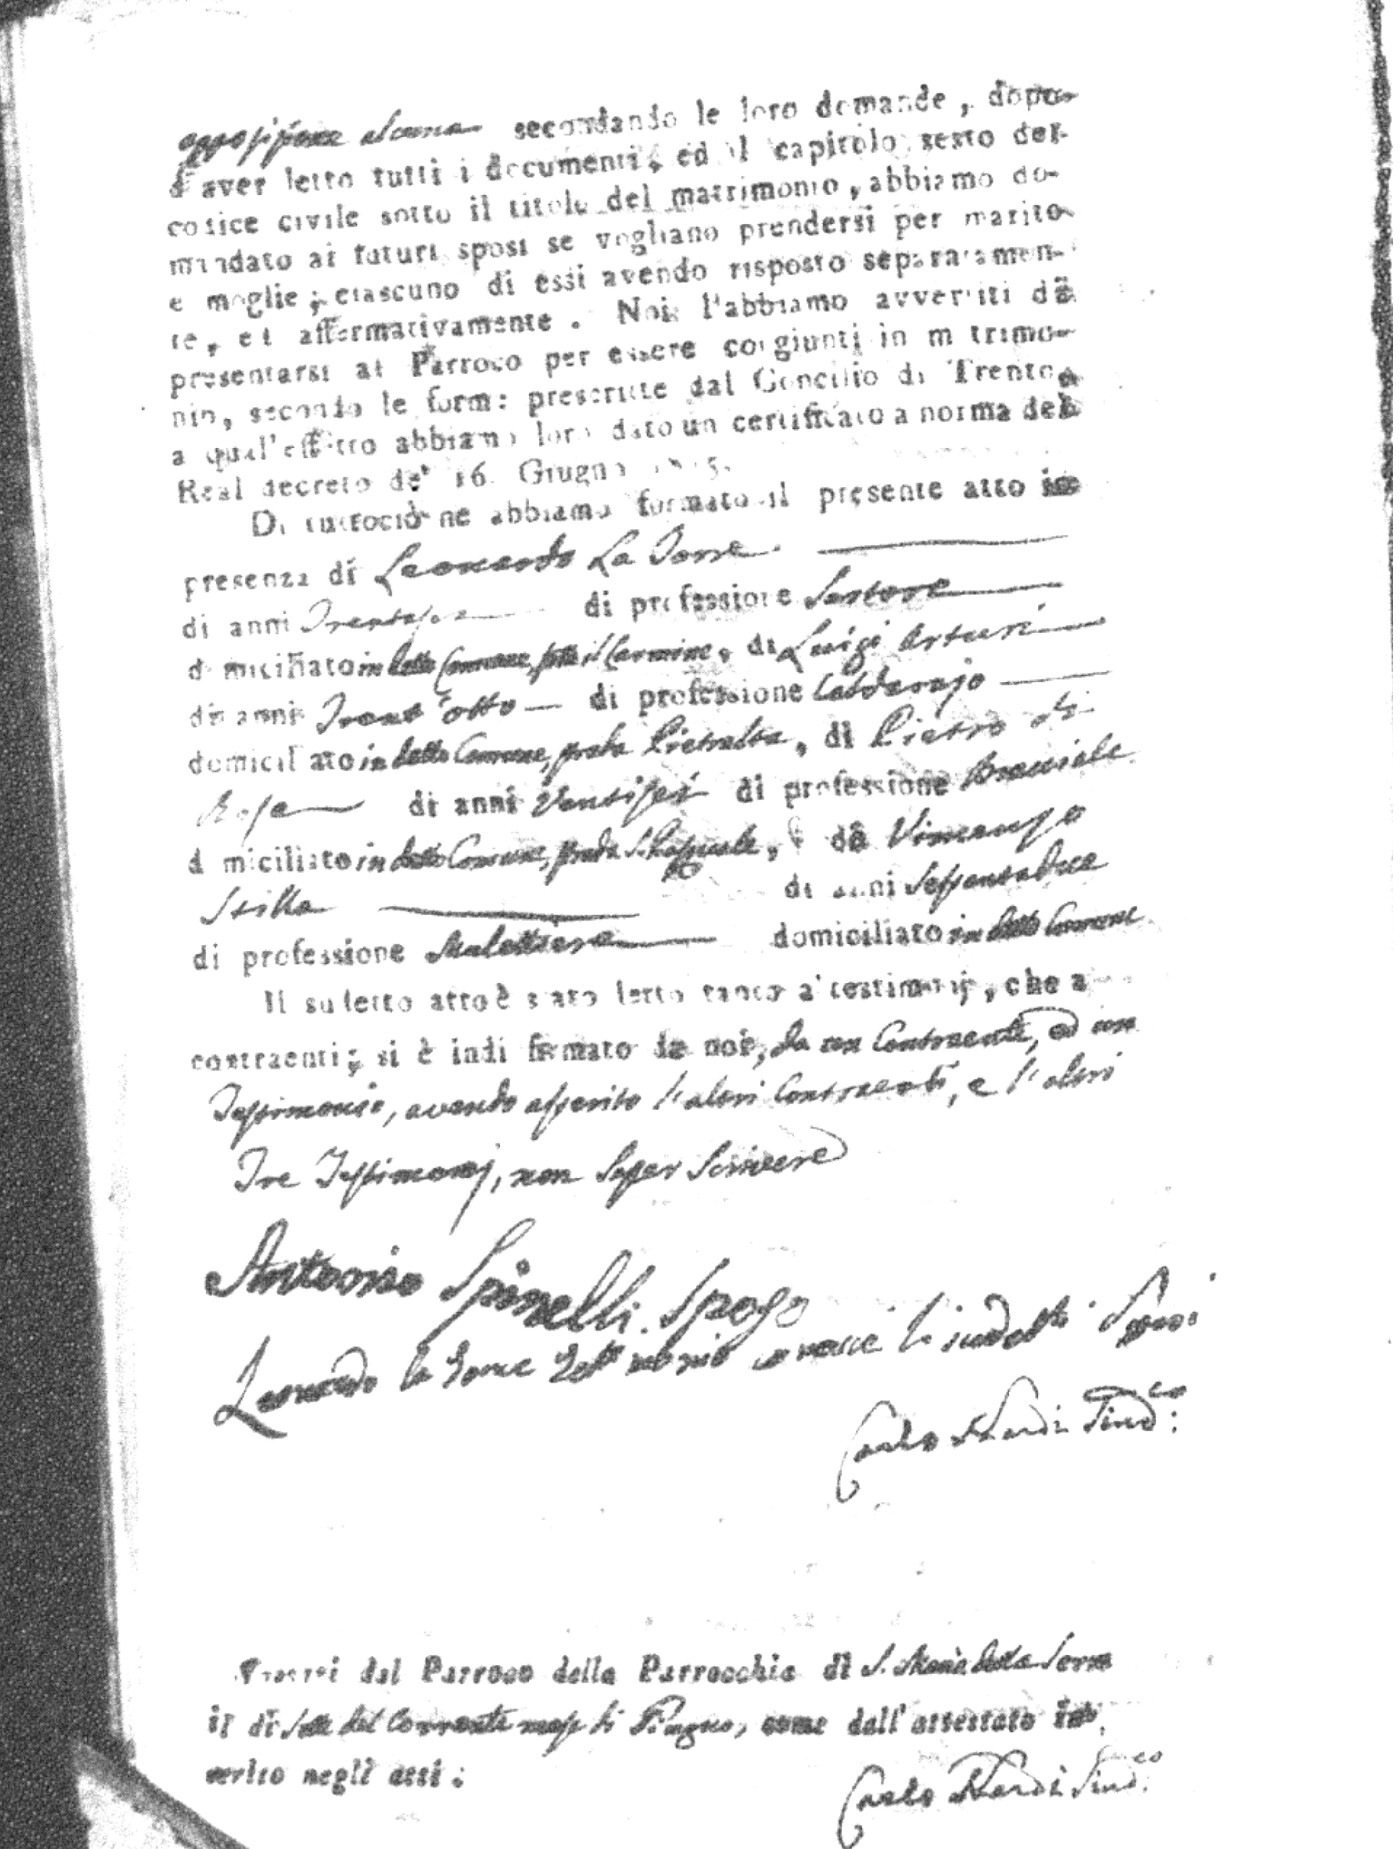 opposizione alcuna secondando le loro domande, dopo
d'aver letto tutti i documenti, ed il capitolo sesto del
codice civile sotto il titolo del matrimonio, abbiamo do-
mandato ai futuri sposi se vogliano prendersi per marito
e moglie; ciascuno di essi avendo risposto separatamen-
te, ed affermativamente. Noi l'abbiamo avvertiti di
presentarsi al Parroco per essere congiunti in matrimo-
nio, secondo le forme prescritte dal Concilio di Trento,
a qual'effetto abbiamo loro dato un certificato a norma del
Real decreto de' 16. Giugno
Di tuttociò ne abbiamo formato il presente atto in
presenza di Leonardo La Torre
di anni Trentasei di professione Sartore
domiciliato in detto Comune, sotto il Carmine, di Luigi Arturi
di anni Trent'otto di professione Caldarajo
domiciliato in detto Comune, strada Pietralta, di Pietro di
Rosa di anni Ventisei di professione Bracciale
domiciliato in detto Comune, strada S. Pasquale, e di Vincenzo
Stilla di anni Sessantadue
di professione Mulettiere domiciliato in detto Comune
Il sudetto atto è stato letto tanto a' testimonj, che a
contraenti; si è indi firmato da noi, da un Contraente, ed un
Testimonio, avendo asserito l'altri Contraenti, e l'altri
Tre Testimonj, non saper scrivere
Antonio Spinelli. Sposo
Leonardo la Torre Testimonio conosce li sudetti Sposi
Carlo Sind.co:
dal Parroco della Parrocchia di S. Maria della Serra
il dì sette del corrente mese di Giugno, come dall'attestato in-
serito negli atti:
Carlo Sind.co: